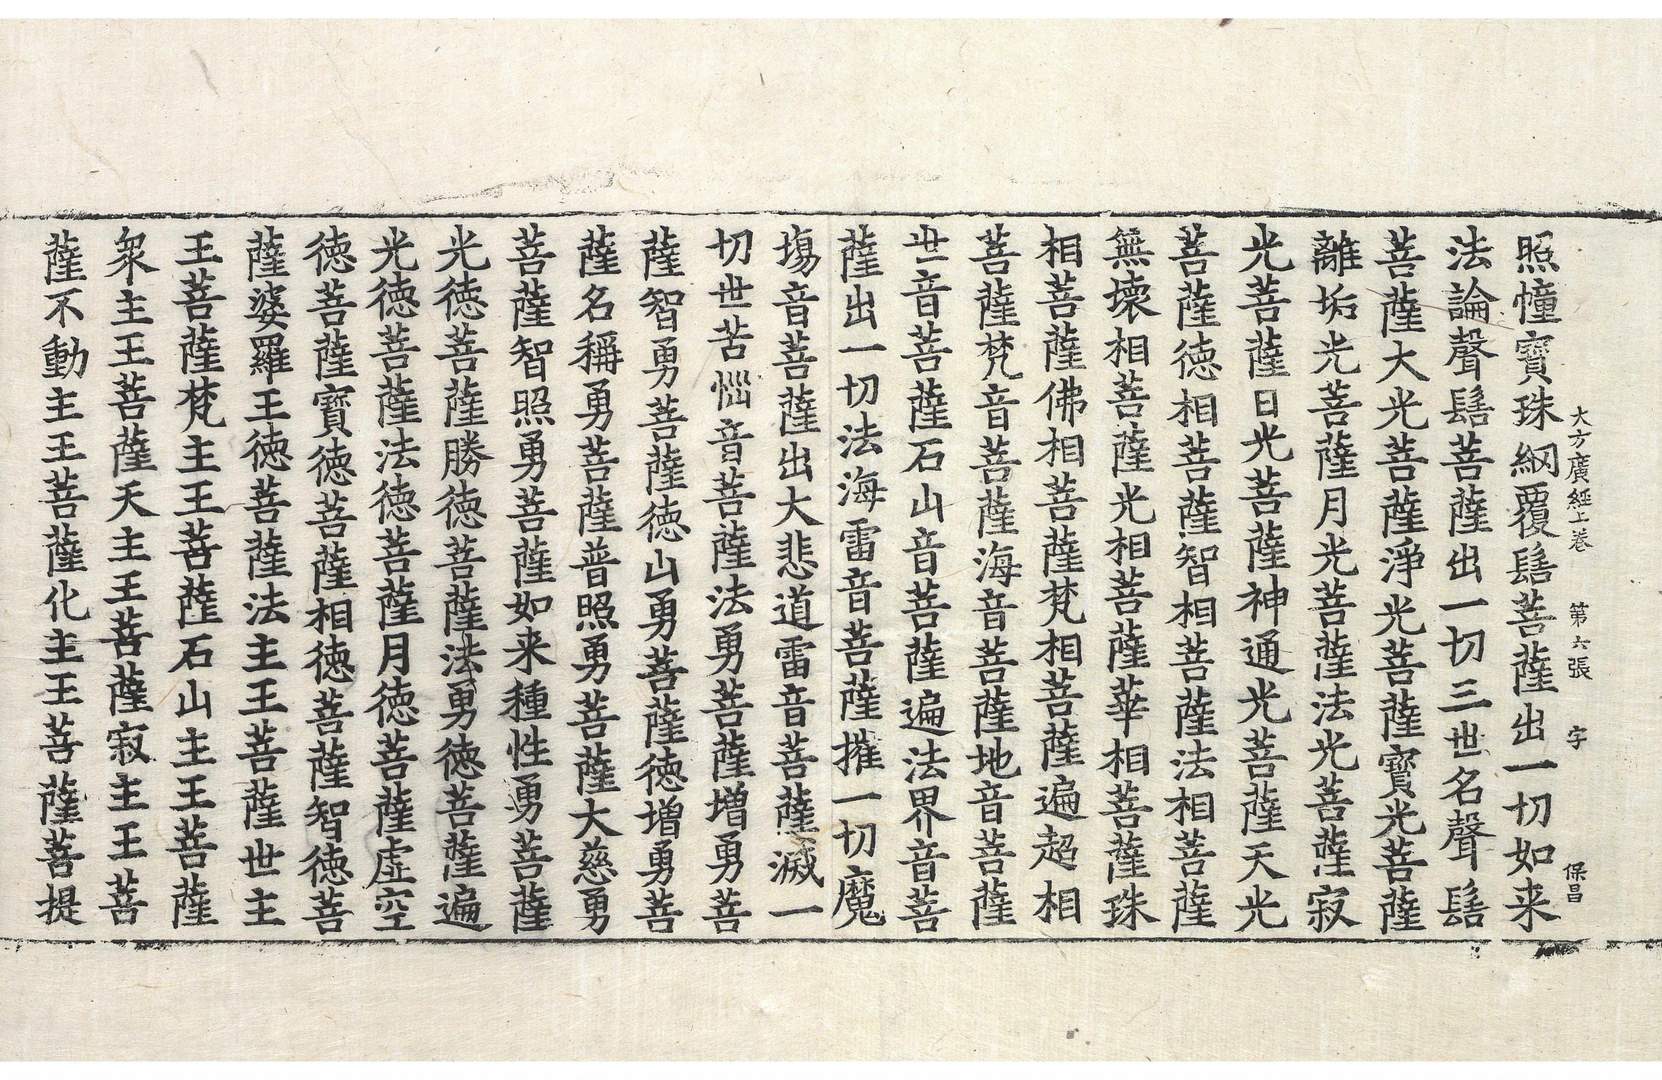 大方廣經上卷　第六張　字　保昌
照幢寶珠網覆髻菩薩出一切如来
法論聲髻菩薩出一切三世名聲髻
菩薩大光菩薩淨光菩薩寶光菩薩
離垢光菩薩月光菩薩法光菩薩寂
光菩薩日光菩薩神通光菩薩天光
菩薩徳相菩薩智相菩薩法相菩薩
無壞相菩薩光相菩薩華相菩薩珠
相菩薩佛相菩薩梵相菩薩遍超相
菩薩梵音菩薩海音菩薩地音菩薩
世音菩薩石山音菩薩遍法界音菩
薩出一切法海雷音菩薩摧一切魔
塲音菩薩出大悲道雷音菩薩滅一
切世苦惱音菩薩法勇菩薩増勇菩
薩智勇菩薩徳山勇菩薩徳増勇菩
薩名稱勇菩薩普照勇菩薩大慈勇
菩薩智照勇菩薩如来種性勇菩薩
光徳菩薩勝徳菩薩法勇徳菩薩遍
光徳菩薩法徳菩薩月徳菩薩虛空
徳菩薩寶徳菩薩相徳菩薩智徳菩
薩婆羅王徳菩薩法主王菩薩世主
王菩薩梵主王菩薩石山主王菩薩
衆主王菩薩天主王菩薩寂主王菩
薩不動主王菩薩化主王菩薩菩提